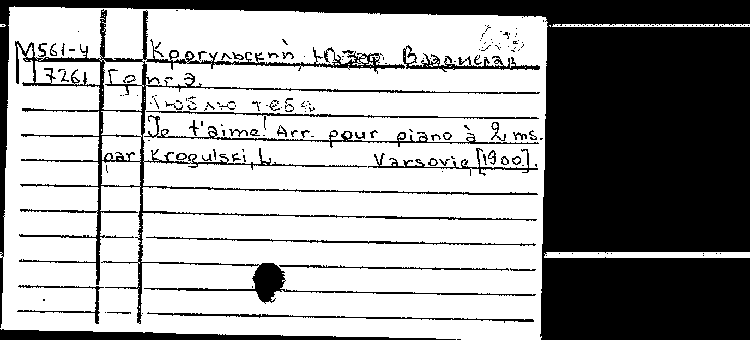 М561-4 Крогульский, Юзеф Владислав
7261 Григ, Э.
Люблю тебя
Je t'aime! Arr. pour piano à 2 ms.
par Krogulski, L. Varsovie, [1900].